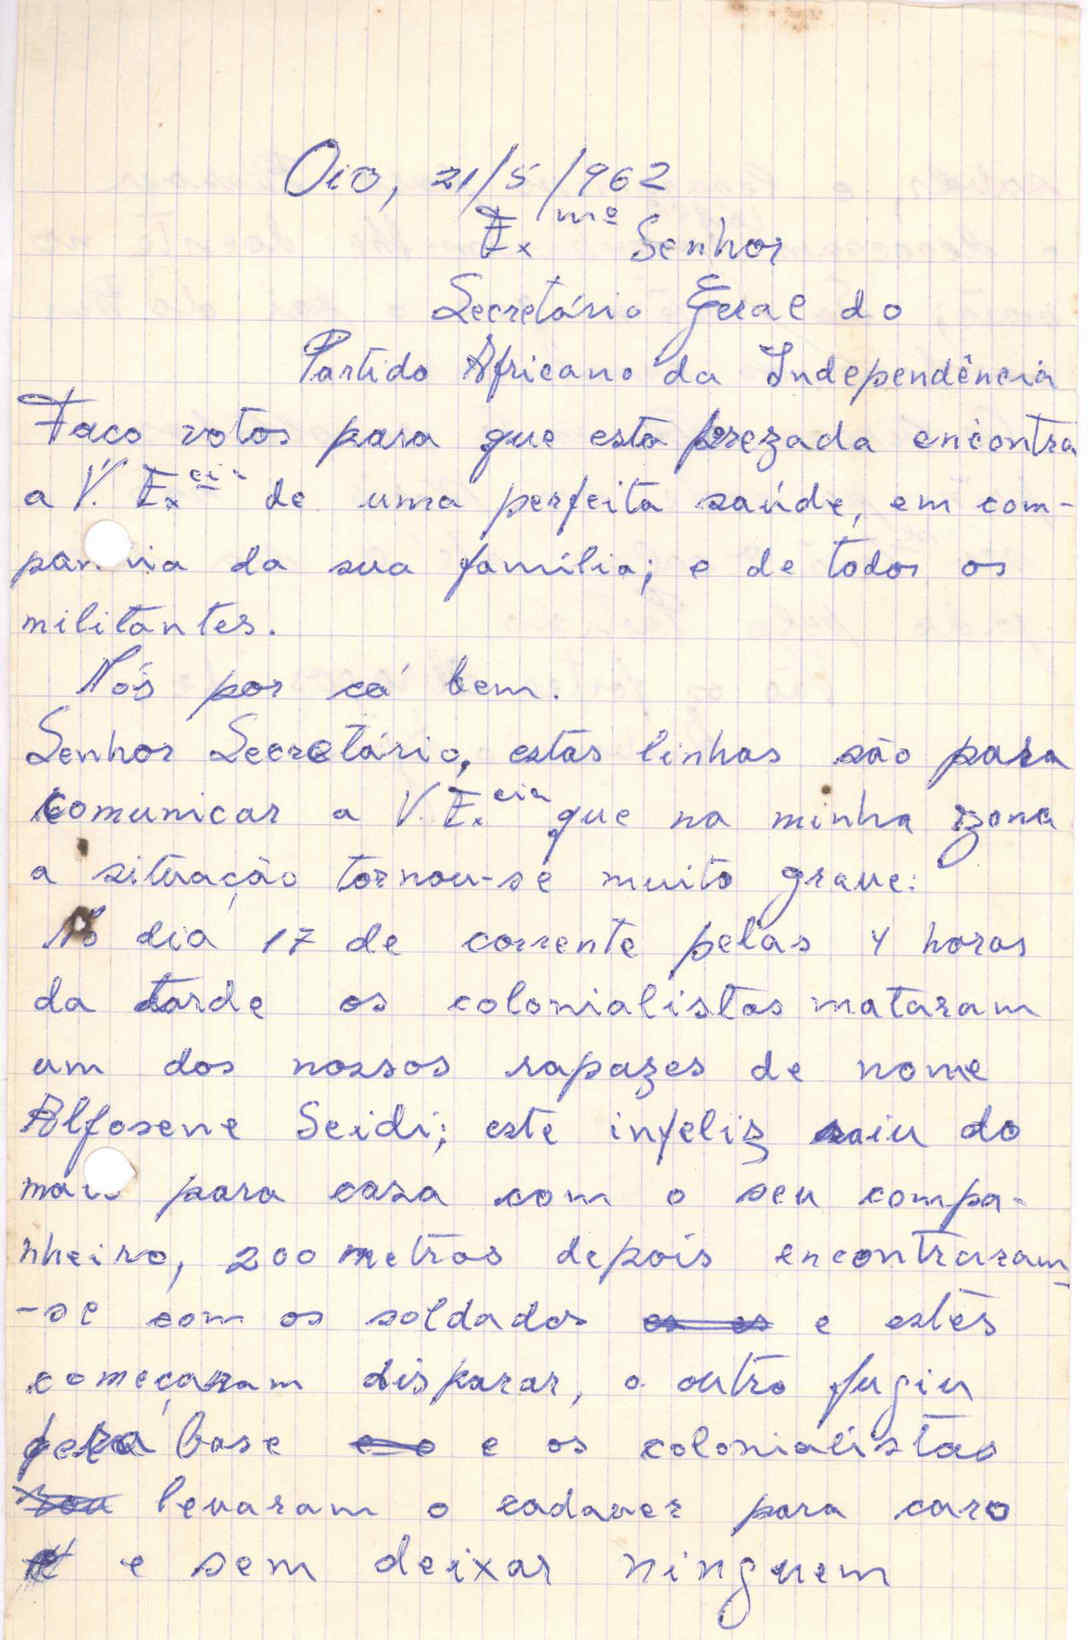 Oio, 21/5/962
Ex.mo Senhor
Secretário Geral do
Partido Africano da Independência
Faço votos para que esta prezada encontra
a V. Ex.cia de uma perfeita saúde, em com-
panhia da sua família; e de todos os
militantes.
Nós por cá bem.
Senhor Secretário, estas linhas são para
comunicar a V. E.cia que na minha zona
a situação tornou-se muito grave:
No dia 17 de corrente pelas 4 horas
da tarde os colonialistas mataram
um dos nossos rapazes de nome
Alfosene Seidi; este infeliz saiu do
mato para casa com o seu compa-
nheiro, 200 metros depois encontraram-
-se com os soldados e estes
começaram disparar, o outro fugiu
para base e os colonialistas
levaram o cadaver para caro
e sem deixar ninguem